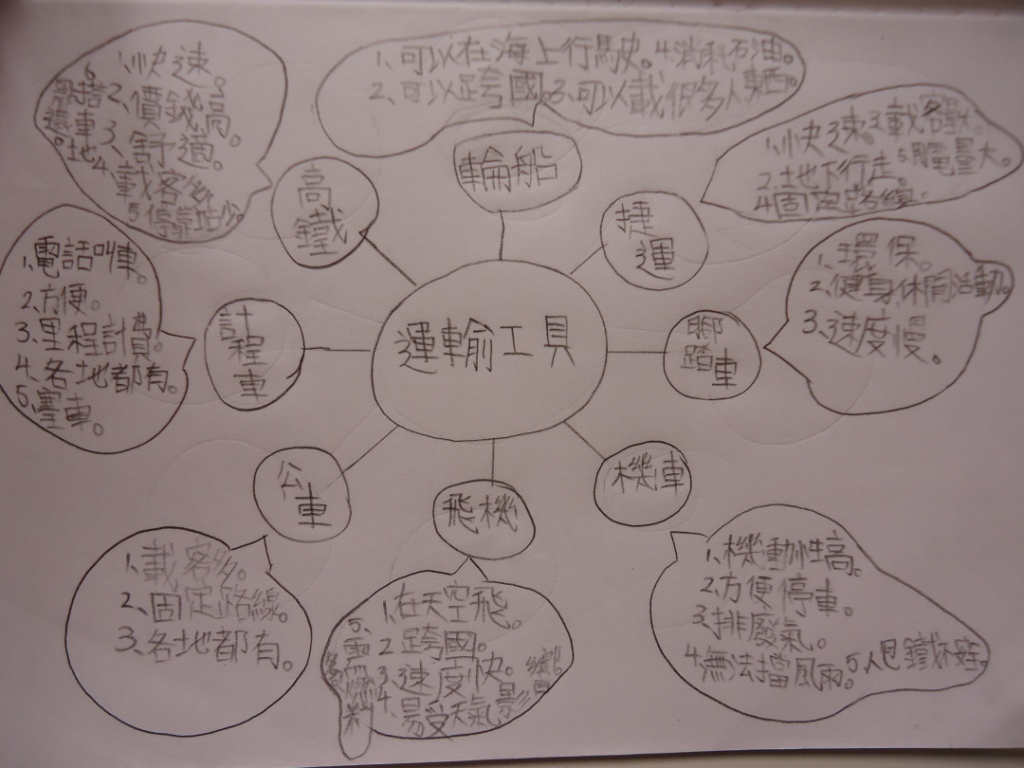 運輸工具
輪船
1、可以在海上行駛。4.消耗石油。
2、可以跨國。3、可以載很多人、東西。
捷運
1.快速。3.載客量大。
2.地下行走。5.用電量大。
4.固定路線。
腳踏車
1、環保。
2、健身休閒活動。
3、速度慢。
機車
1、機動性高。
2、方便停車。
3、排廢氣。
4、無法擋風雨。5.人包鐵不安全。
飛機
1、在天空飛。
2、跨國。
3、速度快。
4、易受天氣影響。
5、需燃料
公車
1、載客多。
2、固定路線。
3、各地都有。
計程車
1、電話叫車。
2、方便。
3、里程計費。
4、各地都有。
5、塞車。
高鐵
1、快速。
2、價錢高。
3、舒適。
4、載客多
5、停靠站少。
6、